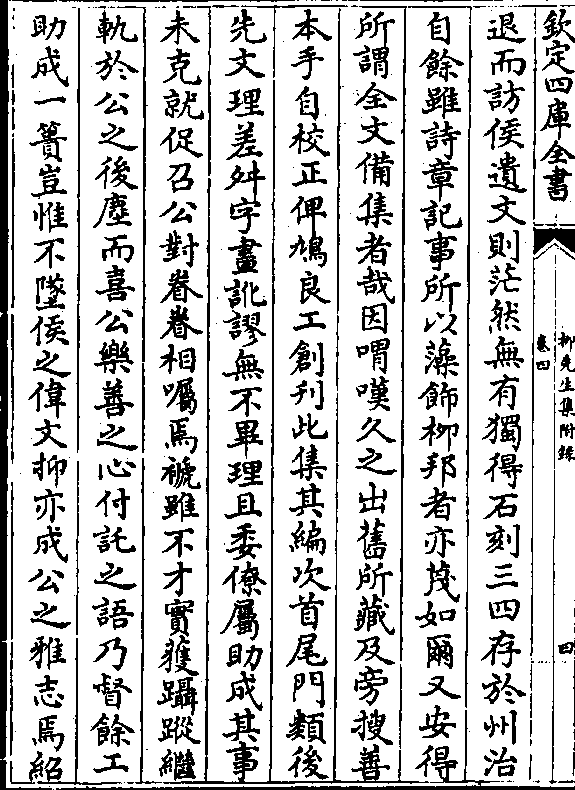 欽定四庫全書
柳先生集附錄
卷四
四
退而訪侯遺文則茫然無有獨得石刻三四存於州治
自餘雖詩章記事所以藻飾柳邦者亦蔑如爾又安得
所謂全文備集者哉因喟嘆久之出舊所藏及旁搜善
本手自校正俾鳩良工創刋此集其編次首尾門類後
先文理差舛字畫訛謬無不畢理且委僚屬助成其事
未克就促召公對眷眷相囑焉褫雖不才實獲躡蹤繼
軌於公之後塵而喜公樂善之心付託之語乃督餘工
助成一簣豈惟不墜侯之偉文抑亦成公之雅志焉紹